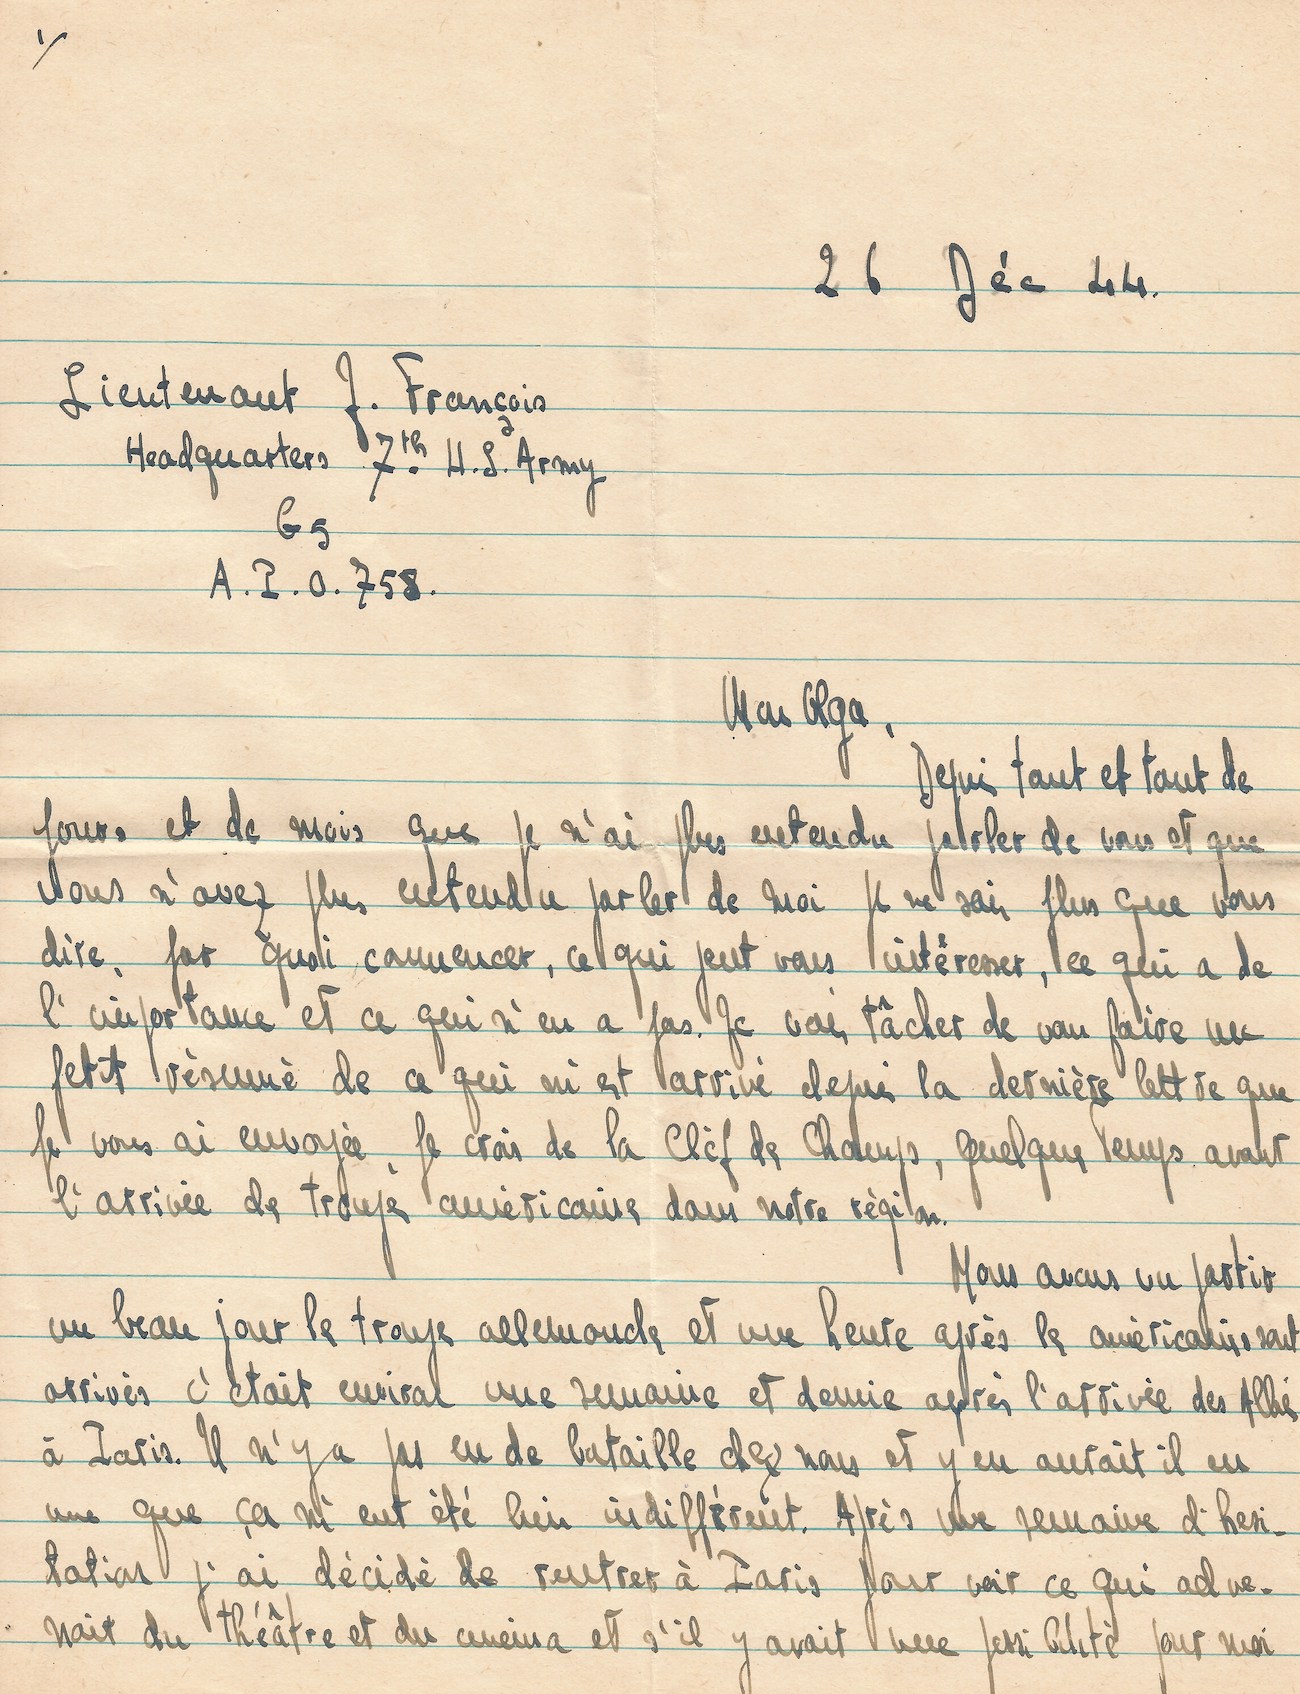 1/
26 Déc 44.
Lieutenant J. François
Headquarters 7th U.S. Army
G5
A.P.O. 758.
Mon Olga,
Depuis tant et tant de
jours et de mois que je n'ai plus entendu parler de vous et que
vous n'avez plus entendu parler de moi je ne sais plus que vous
dire, par quoi commencer, ce qui peut vous intéresser, ce qui a de
l'importance et ce qui n'en a pas. Je vais tâcher de vous faire un
petit résumé de ce qui m'est arrivé depuis la dernière lettre que
je vous ai envoyée, je crois de la Clef des Champs, quelques temps avant
l'arrivée des troupes américaines dans notre région.
Nous avons vu partir
un beau jour les troupes allemandes et une heure après les américains sont
arrivés c'était environ une semaine et demie après l'arrivée des Alliés
à Paris. Il n'y a pas eu de bataille chez nous et y en aurait il eu
une que ça m'eut été bien indifférent. Après une semaine d'hési-
tation j'ai décidé de rentrer à Paris pour voir ce qui adve-
nait du théâtre et du cinéma et s'il y avait une possibilité pour moi